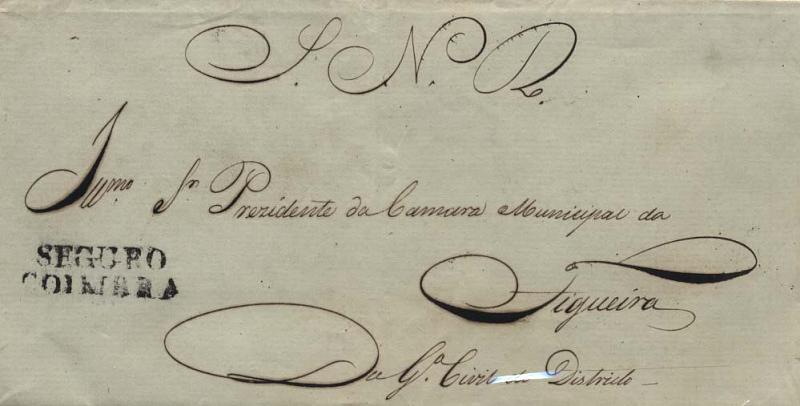 S. N. R.
Illmo. Sr. Prezidente da Camara Municipal da
SEGURO
COIMBRA
Figueira
Da G.a Civil do Districto